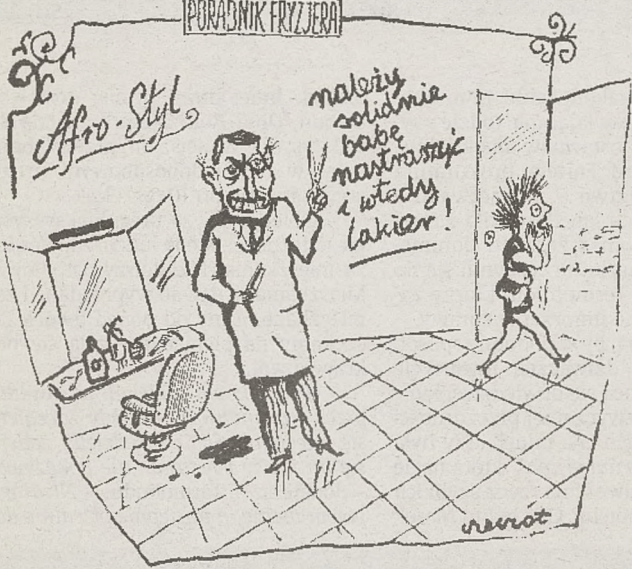 PORADNIK FRYZJERA
Afro-Styl
należy
solidnie
babę
nastraszyć
i wtedy
lakier!